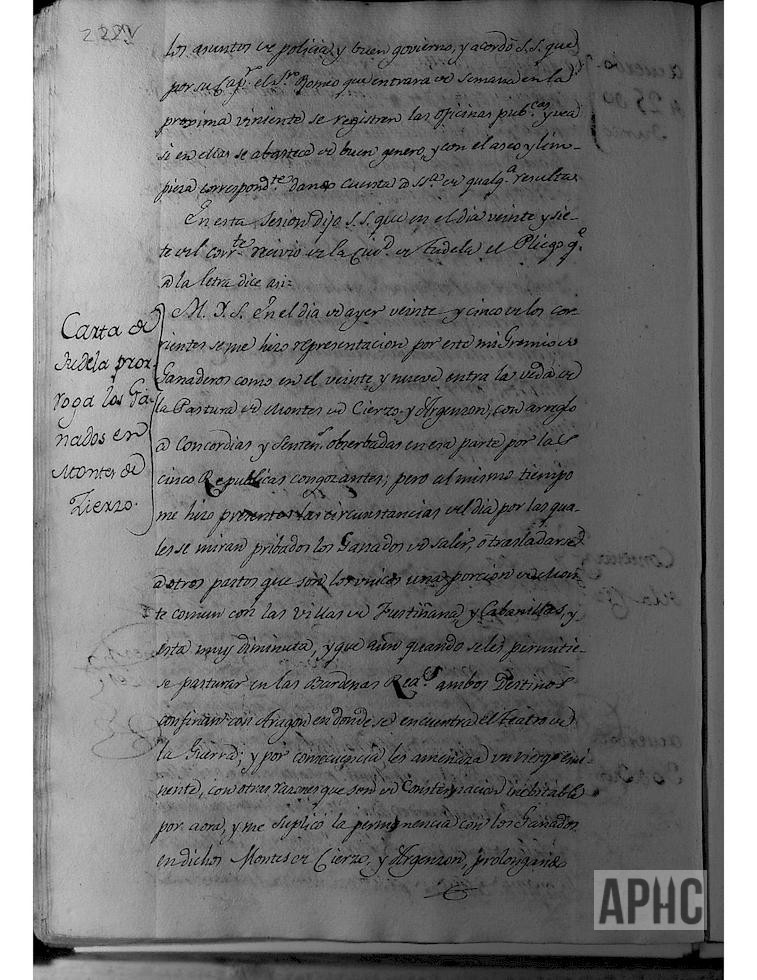 228v
los asuntos de policia y buen govierno, y acordó S.S. que
por su Cap.r el S.r Romeo que entrara de semana en la
proxima viniente se registren las oficinas pub.cas y vea
si en ellas se abastece de buen genero, y con el aseo y lim-
pieza correspond.te dando cuenta a S.S.a de qualq.a resulta
En esta Sesion dijo S.S. que en el dia veinte y sie-
te del corr.te recivio de la Ciud.d de Tudela el Pliego q.e
a la letra dice asi:
Carta de
Tudela pror
roga los Ga-
nados en
Montes de
Zierzo.
M. I. S. En el dia de ayer veinte y cinco de los cor
rientes se me hizo representacion por este mi Gremio de
Ganaderos como en el veinte y nueve entra la veda de
la Pastura de Montes de Cierzo y Argenzon, con arreglo
a Concordias y Senten.s obserbadas en esa parte por las
cinco Republicas congozantes; pero al mismo tiempo
me hizo presentes las circunstancias del dia por las qua-
les se miran pribados los Ganados de salir, ó trasladarse
a otros pastos que son los unicos una porcion de Mon-
te comun con las villas de Fustiñana, y Cabanillas, y
esta muy diminuta, y que aun quando se les permitie-
se pasturar en las Bardenas Rea.s ambos Destinos
confinan con Aragon en donde se encuentra el Teatro de
la Guerra; y por consecuencia les amenaza un riesgo emi
nente, con otras razones que son de Consternacion inebitable
por aora, y me suplicó la permanencia con los Ganados
en dichos Montes de Cierzo, y Argenzon, prolongando
APHC